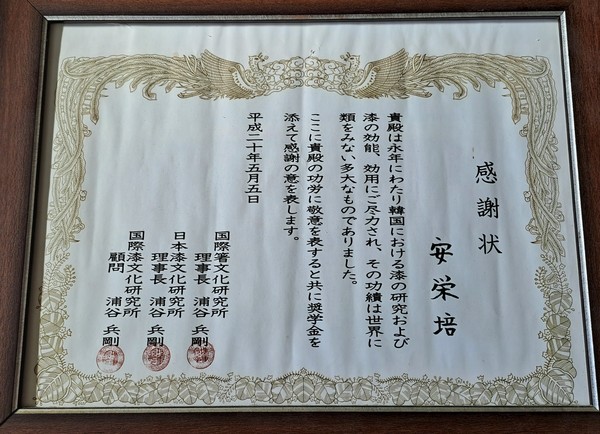 感謝状
安栄培
貴殿は永年にわたり韓国における漆の研究および
漆の効能、効用にご尽力され、その功績は世界に
類をみない多大なものでありました。
ここに貴殿の功労に敬意を表すると共に奨学金を
添えて感謝の意を表します。
平成二十年五月五日
国際箸文化研究所
理事長 浦谷 兵剛
日本漆文化研究所
理事長 浦谷 兵剛
国際漆文化研究所
顧問 浦谷 兵剛